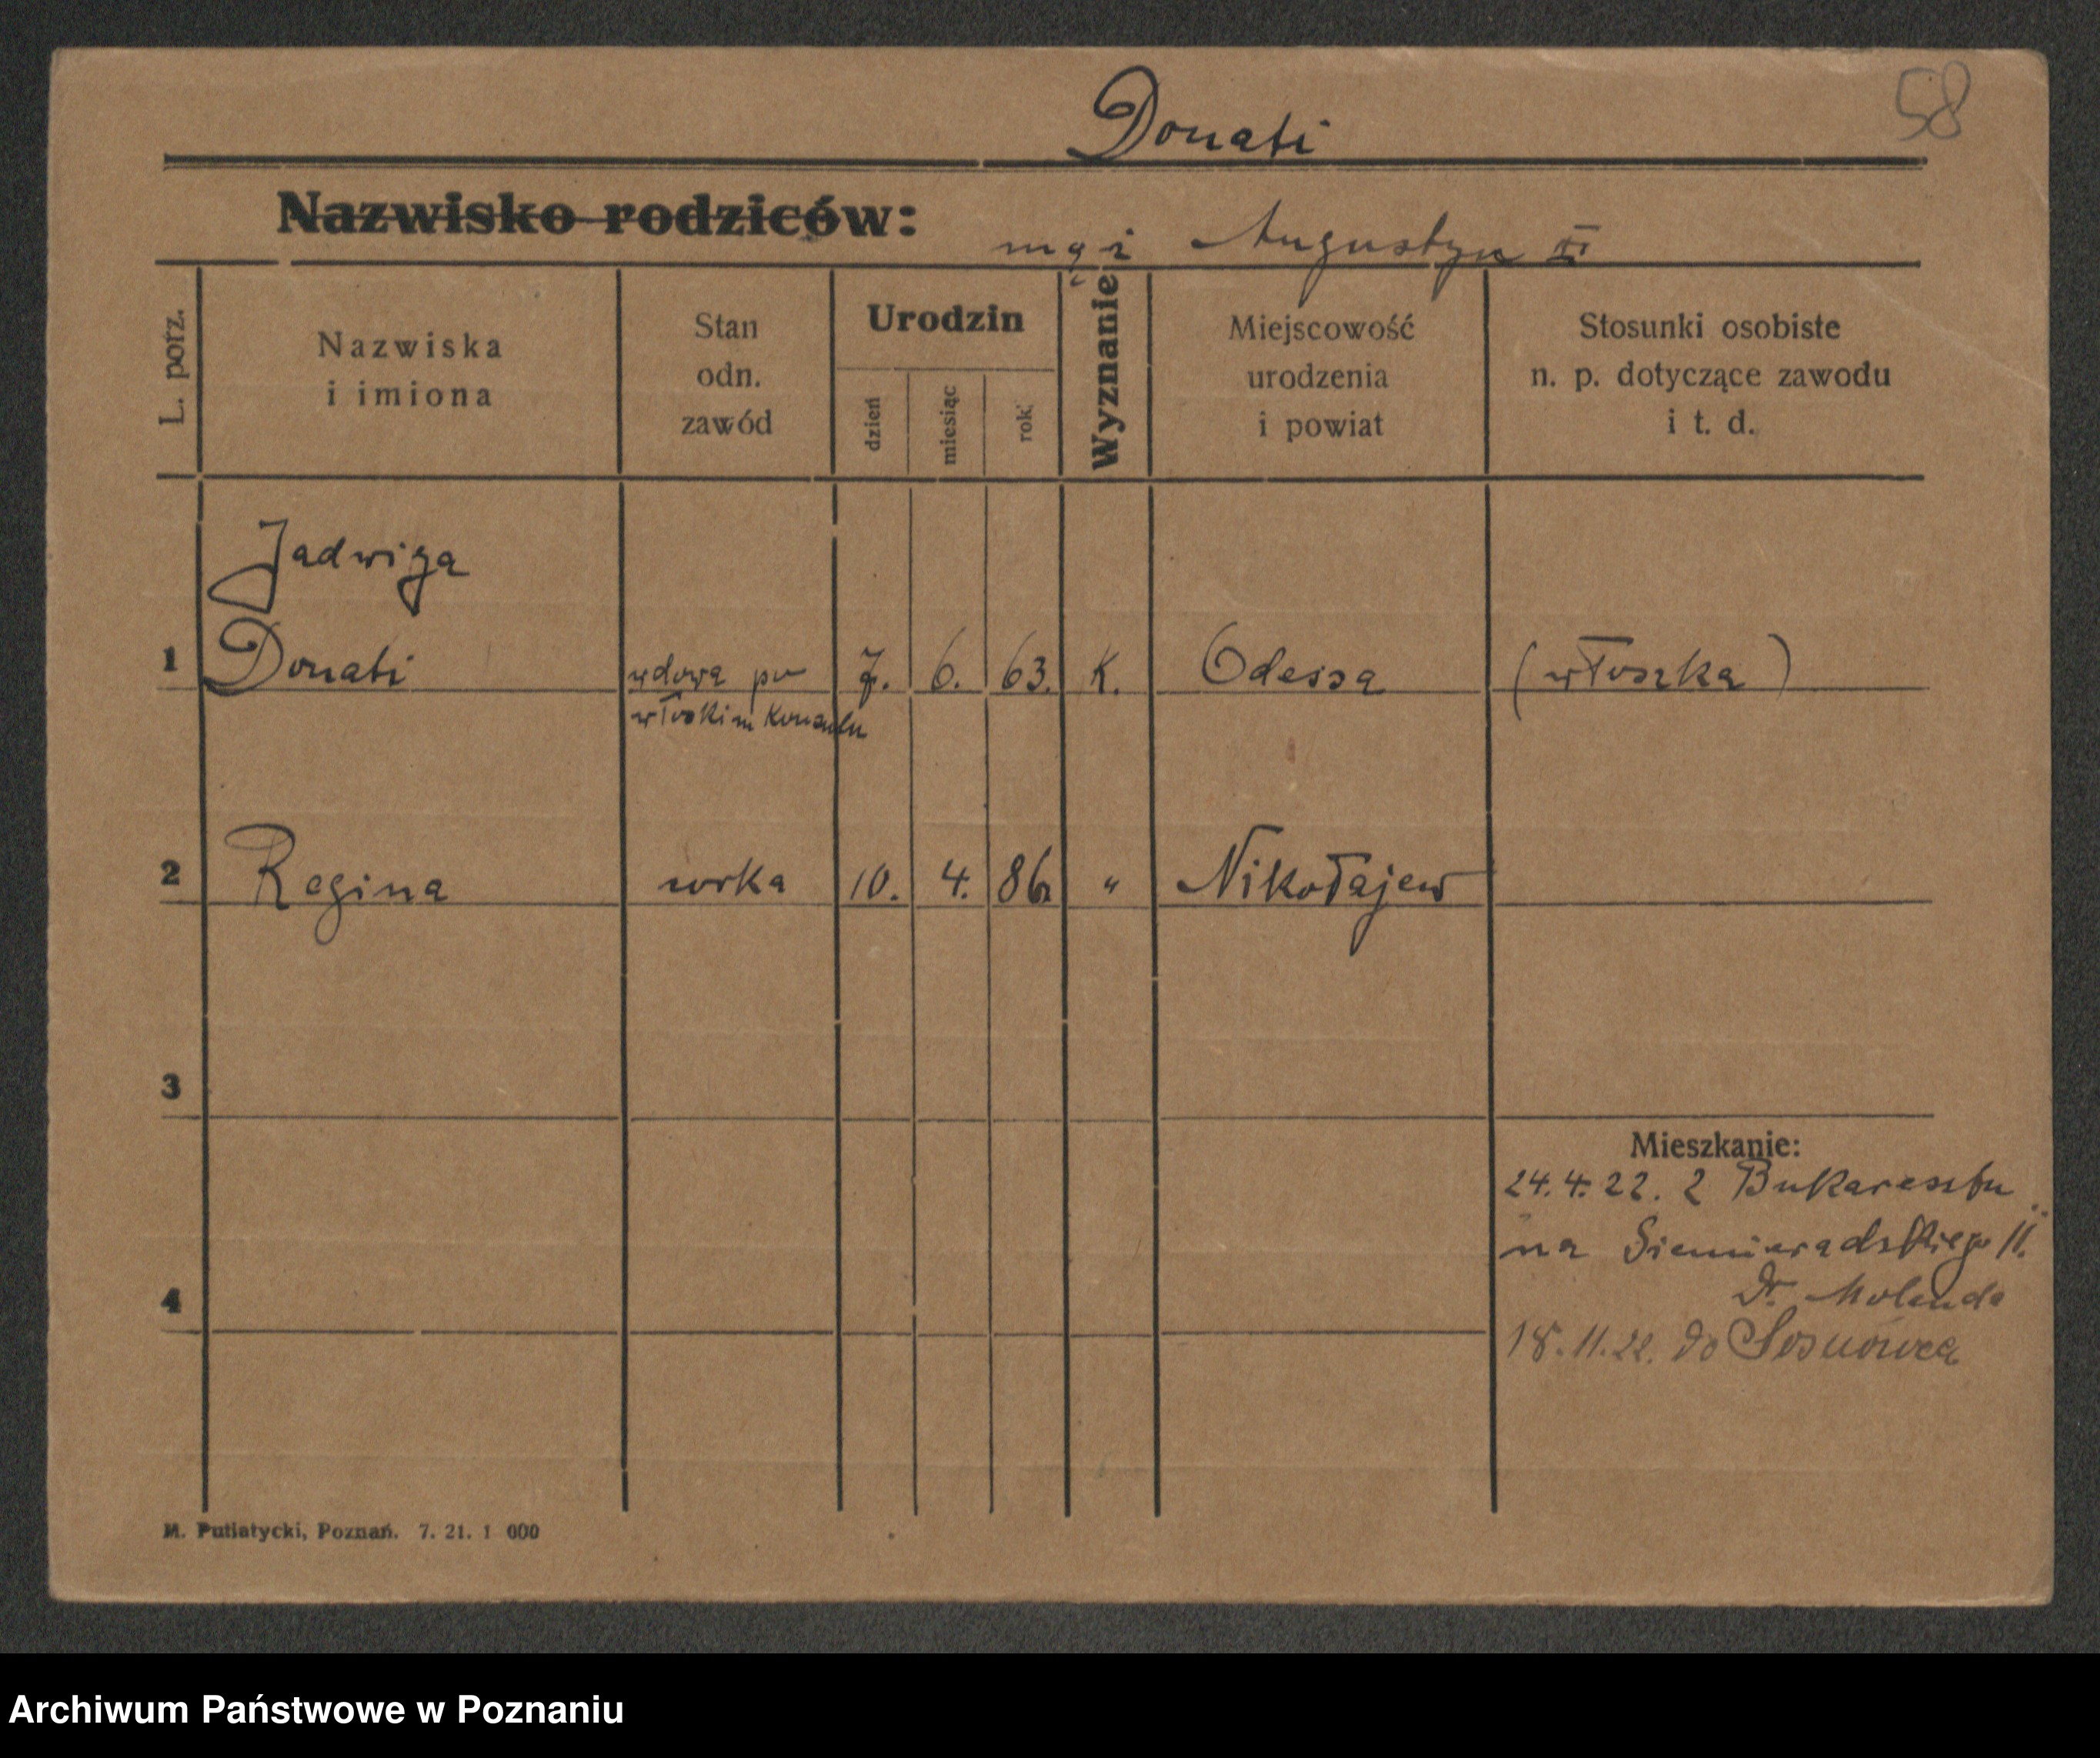 58
Donati
Nazwisko rodziców:
mąż Augustyn
L. porz.
Nazwiska
i imiona
Stan
odn.
zawód
Urodzin
dzień
miesiąc
rok
Wyznanie
Miejscowość
urodzenia
i powiat
Stosunki osobiste
n. p. dotyczące zawodu
i t. d.
Jadwiga
1 Donati wdowa po 7. 6. 63. K. Odessa (włoszka)
włoskim Konsulu
2 Regina wrka 10. 4. 86. " Nikołajew
3
Mieszkanie:
24.4.22. z Bukaresztu
na Siemieradskiego 11.
4
Dr. Molenda
18.11.22. do Sosnowca
M. Putiatycki, Poznań. 7. 21. 1 000
Archiwum Państwowe w Poznaniu